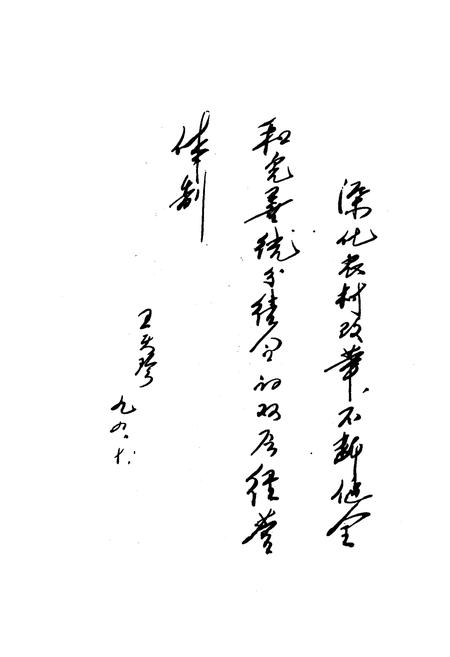 深化农村改革、不断健全
和完善统分结合的双层经营
体制
王天琴
九九、十、